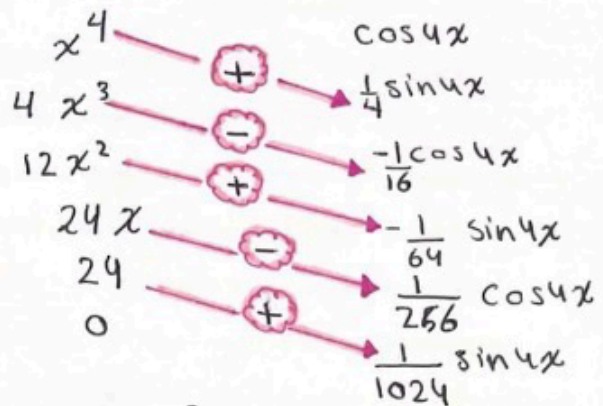 x⁴ cos4x
+
4x³ 1/4 sin4x
-
12x² -1/16 cos4x
+
24x -1/64 sin4x
-
24 1/256 cos4x
+
0 1/1024 sin4x